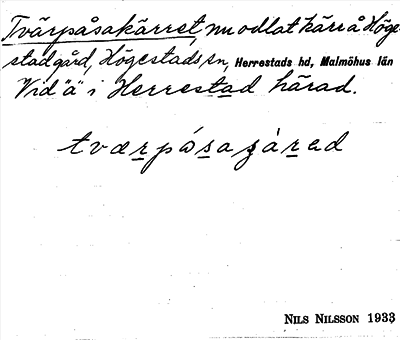 Tvärpåsakärret, nu odlat kärr å Höge-
stad gård, Högestads sn, Herrestads hd, Malmöhus län
Vid "ä" i Herrestad härad.
tværpåsaʒárad
NILS NILSSON 1933